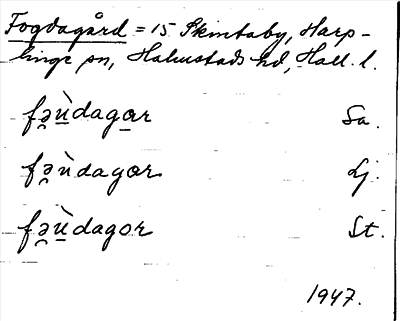 Fogdagård = 15 Skintaby, Harp-
linge sn, Halmstads hd, Hall. l.
fə̯ù̲daga̲r Sa.
fə̯ùdagær Lj.
fə̯ù̲dagor St.
1947.